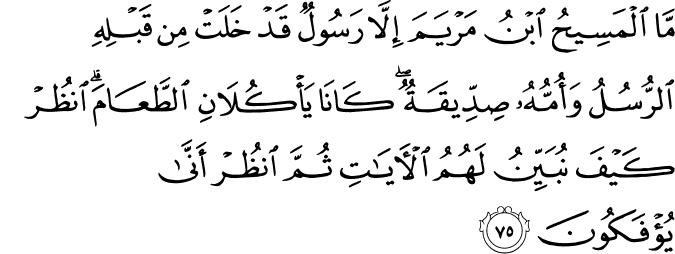 مَّا ٱلْمَسِيحُ ٱبْنُ مَرْيَمَ إِلَّا رَسُولٌ قَدْ خَلَتْ مِن قَبْلِهِ
ٱلرُّسُلُ وَأُمُّهُۥ صِدِّيقَةٌ ۖ كَانَا يَأْكُلَانِ ٱلطَّعَامَ ۗ ٱنظُرْ
كَيْفَ نُبَيِّنُ لَهُمُ ٱلْـَٔايَـٰتِ ثُمَّ ٱنظُرْ أَنَّىٰ
يُؤْفَكُونَ ٧٥